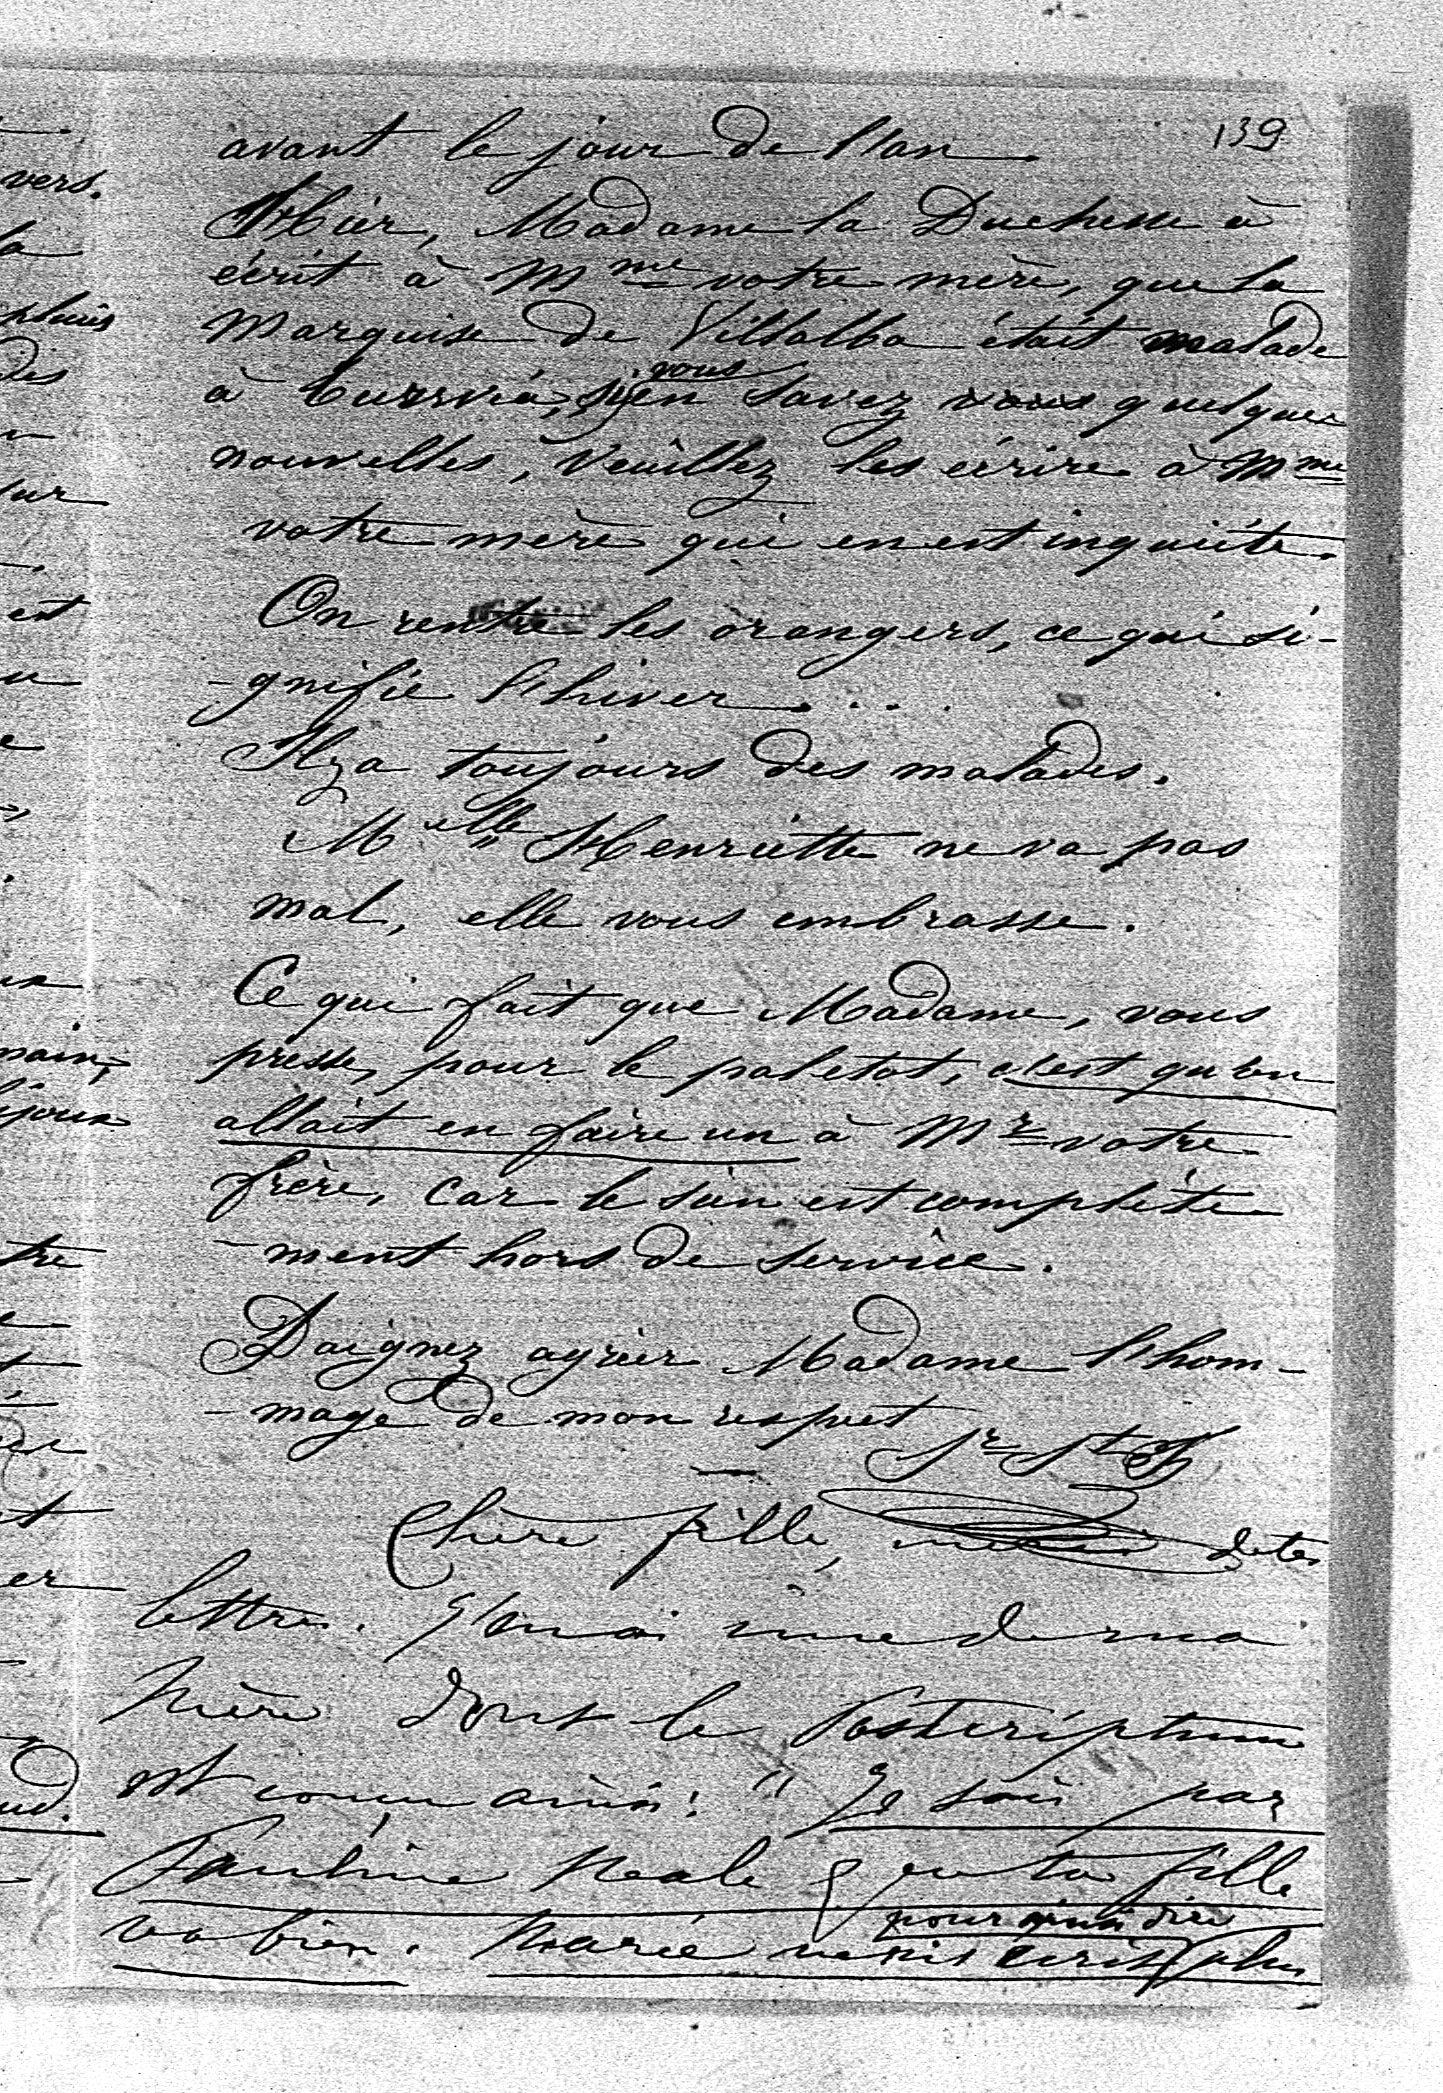 139
avant le jour de l'an.
Hier, Madame la Duchesse a
écrit à Mme votre mère, que la
Marquise de Villalba était malade
à , si vous en savez quelques
nouvelles, veuillez les écrire à Mme
votre mère qui en est inquiète.
On rentre les orangers, ce qui si-
-gnifie l'hiver....
Il y a toujours des malades.
Melle Henriette ne va pas
mal, elle vous embrasse.
Ce qui fait que Madame, vous
presse, pour le paletot, c'est qu'on
allait en faire un à Mr votre
frère, car le sien est complète
-ment hors de service.
Daignez agréer Madame l'hom-
-mage de mon respect
Sr St
Chère fille, merci de tes
lettres. J'en ai une de ma
mère dont le postcriptum
est conçu ainsi: "Je sais par
Pauline Neale que ta fille
va bien. Marie ne m'écrit pour ainsi dire plus
vers.
la
plaies
des
sur
est
main,
bijoux